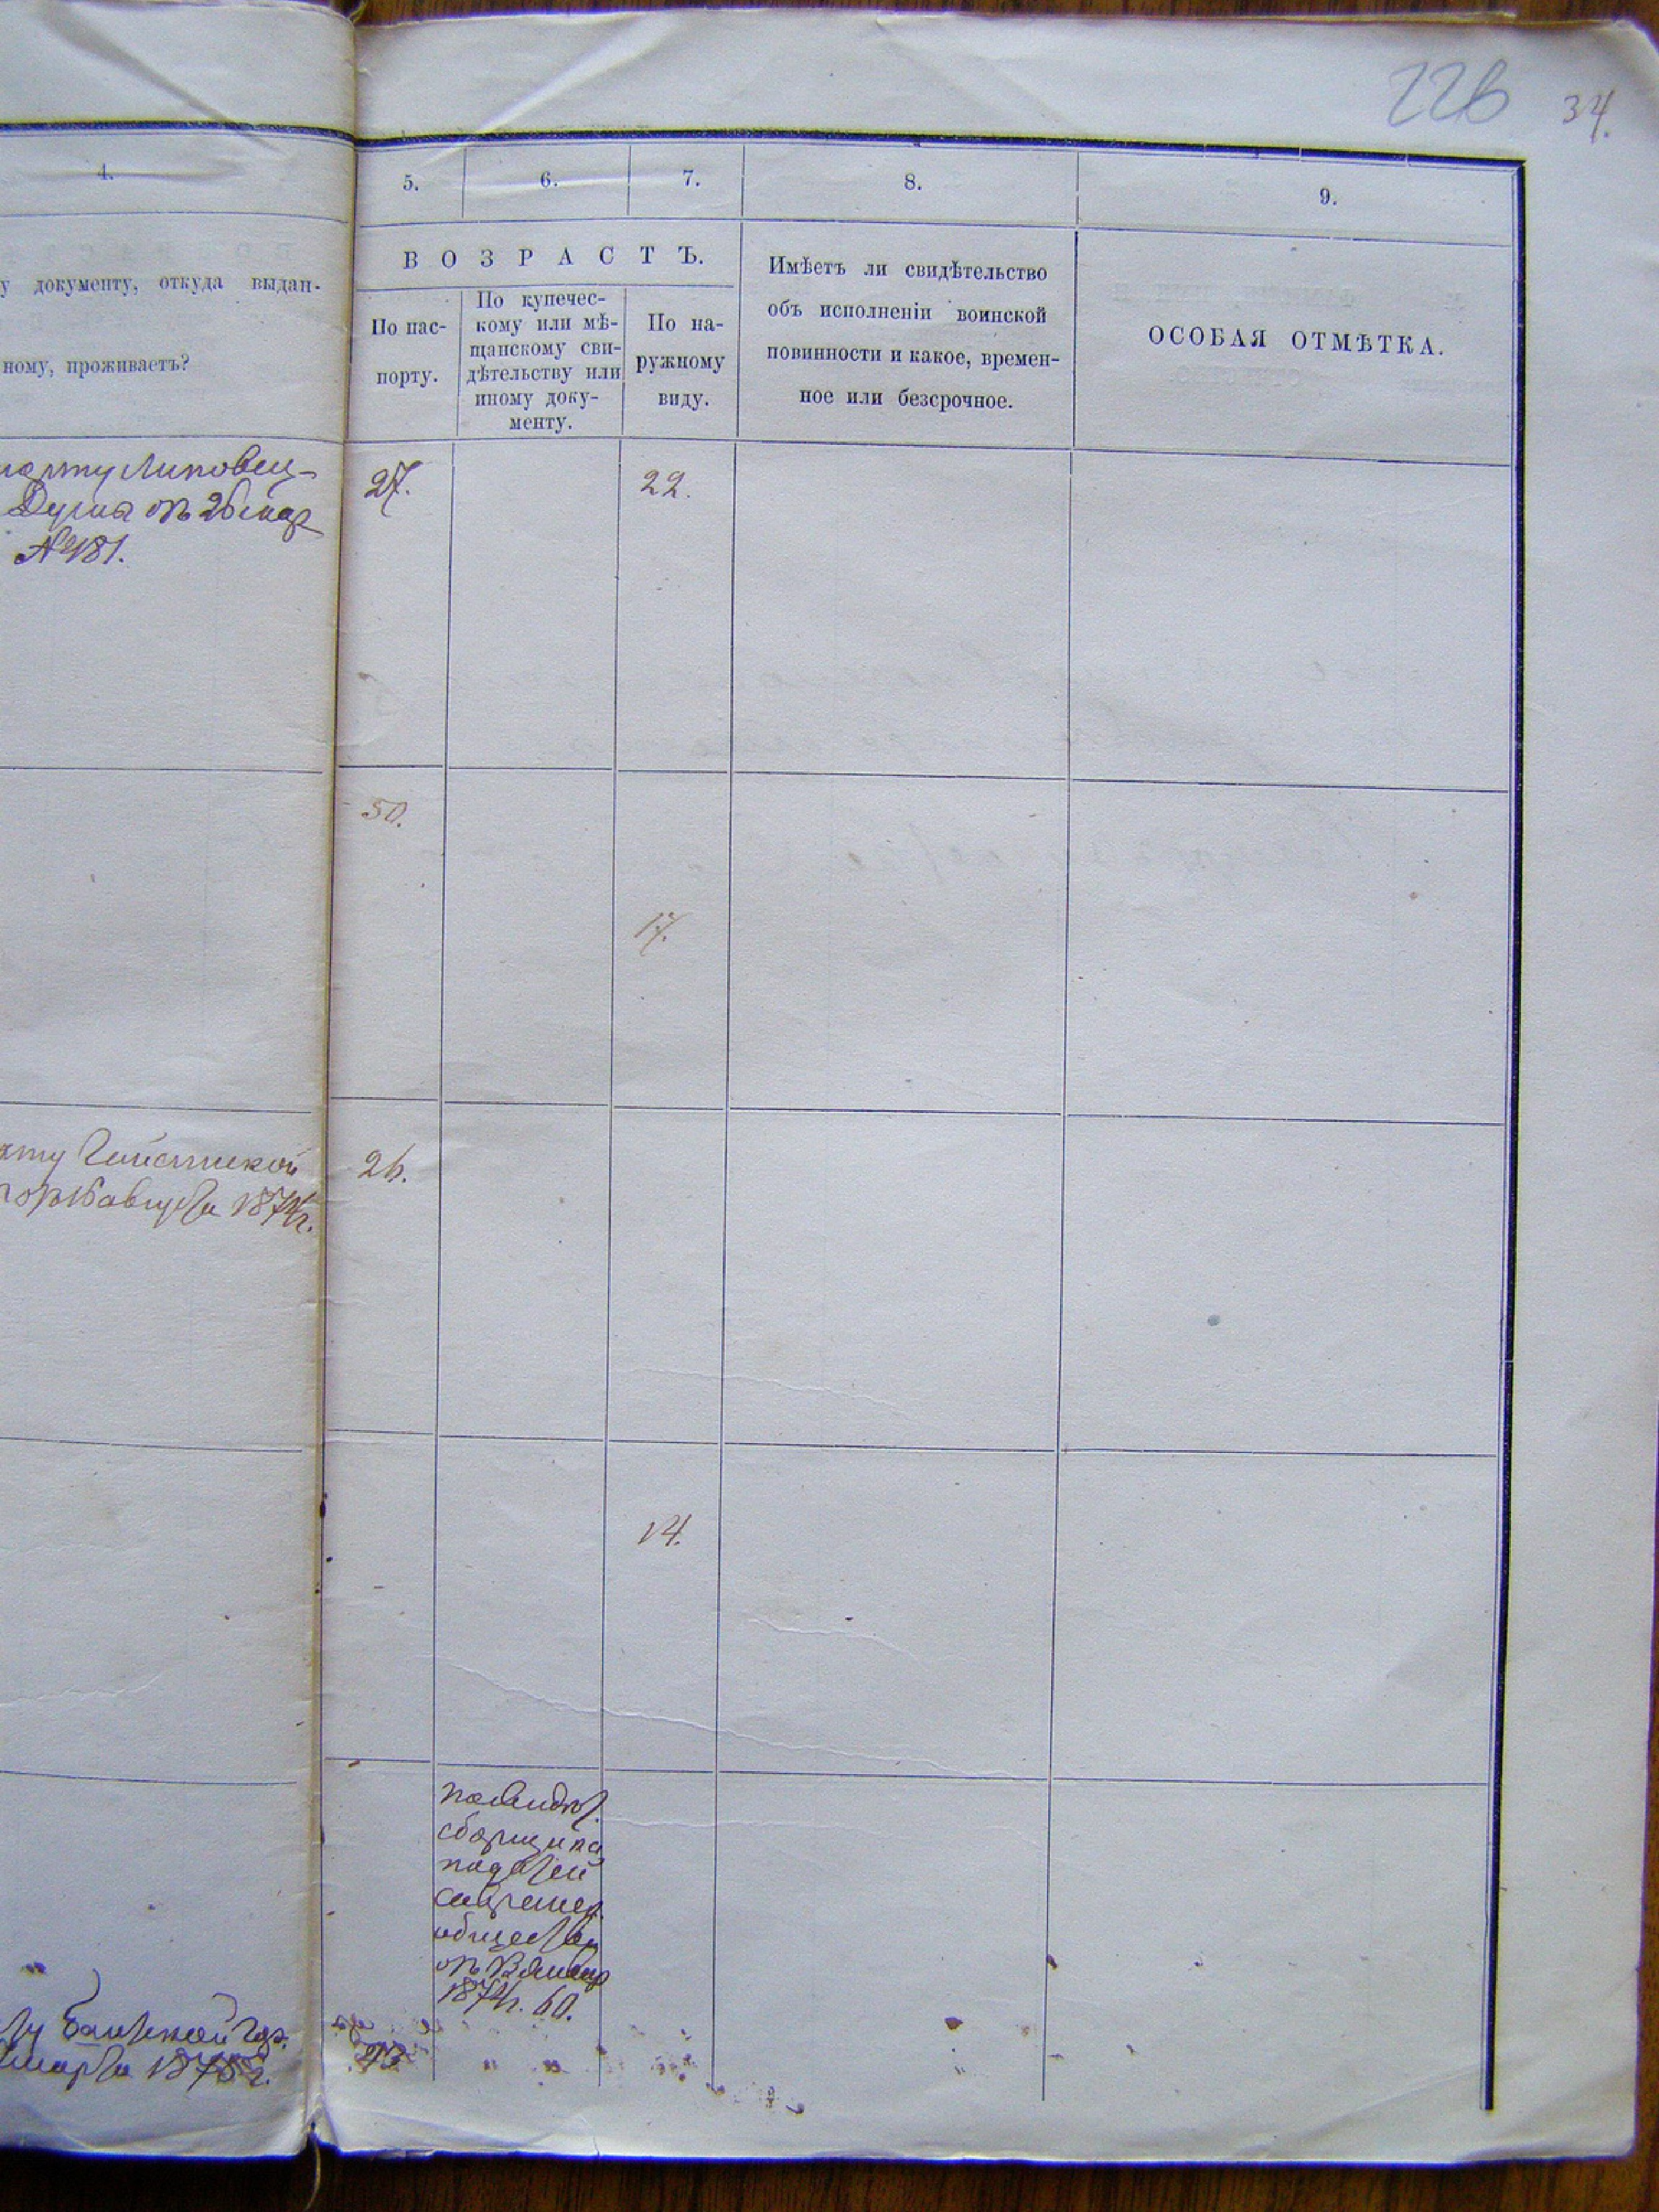 226 34.
4. 5. 6. 7. 8. 9.
у документу, откуда выдан-
ному, проживаетъ?
ВОЗРАСТЪ.
По пас-
порту.
По купечес-
кому или мѣ-
щанскому сви-
дѣтельству или
иному доку-
менту.
По на-
ружному
виду.
Имѣетъ ли свидѣтельство
объ исполненіи воинской
повинности и какое, времен-
ное или безсрочное.
ОСОБАЯ ОТМѢТКА.
Липовец-
Думы отъ 26 мар
№481.
27.
22.
50.
17.
26.
августа 1874г.
14.
по
сборщика
податей
общества
отъ
1874г. 60.
гор.
марта 1875г.